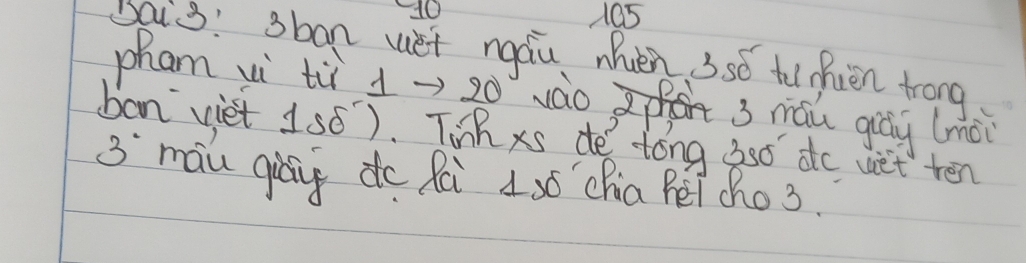 10 105
Bài 3: 3 bạn viết ngẫu nhiên 3 số tự nhiên trong
phạm vi từ 1 → 20 vào 2 phần 3 mẩu giấy (mỗi
bạn viết 1 số). Tính xs để tổng 3 số đc viết trên
3 mẩu giấy đc là 1 số chia hết cho 3.